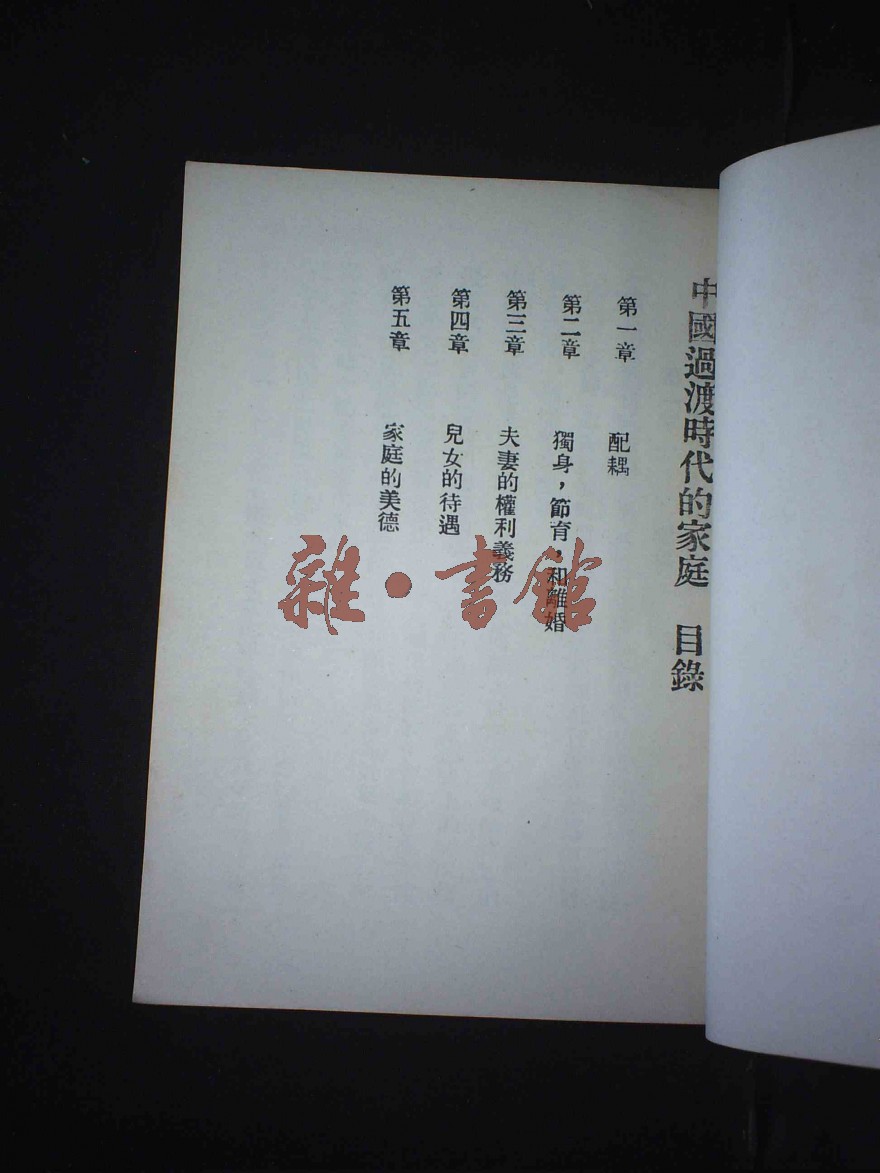 中國過渡時代的家庭　目錄
第一章　配耦
第二章　獨身，節育，和離婚
第三章　夫妻的權利義務
第四章　兒女的待遇
第五章　家庭的美德
雜・書館